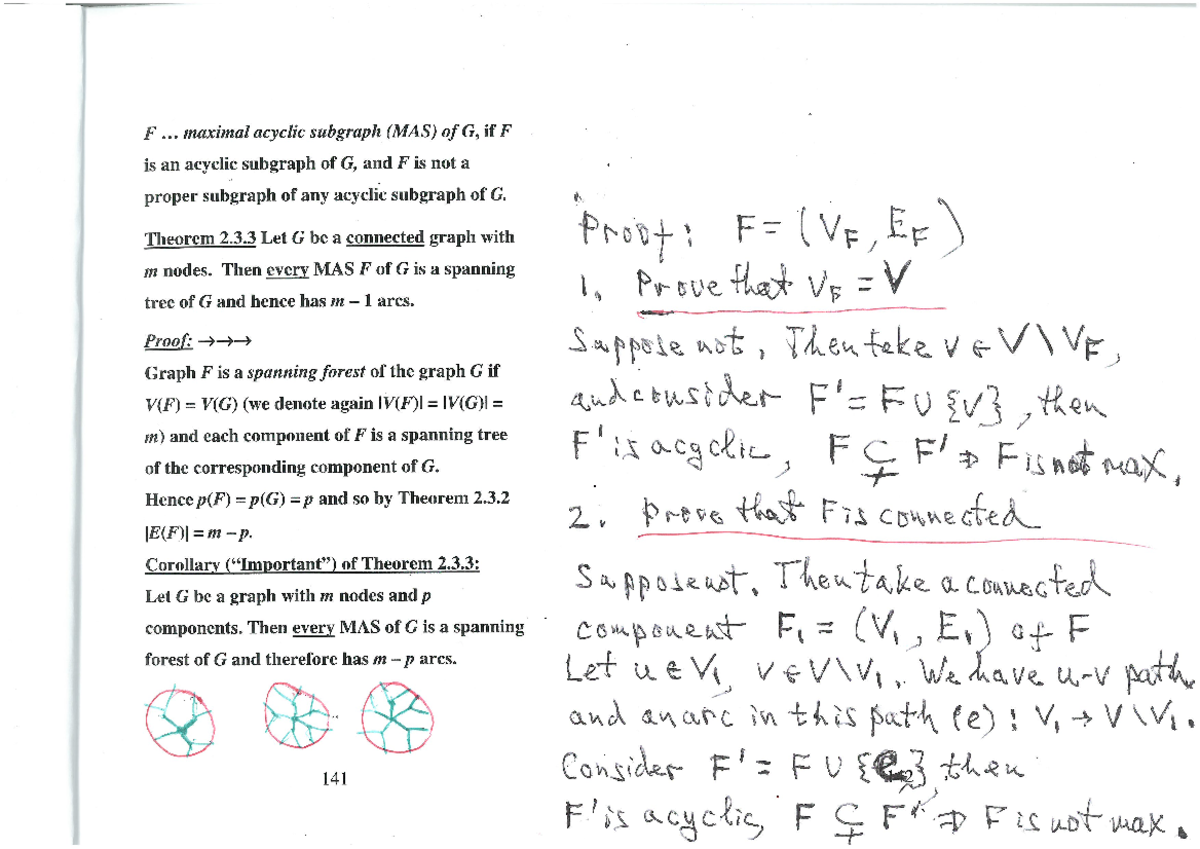 F … maximal acyclic subgraph (MAS) of G, if F
is an acyclic subgraph of G, and F is not a
proper subgraph of any acyclic subgraph of G.
Theorem 2.3.3 Let G be a connected graph with
m nodes. Then every MAS F of G is a spanning
tree of G and hence has m – 1 arcs.
Proof: →→→
Graph F is a spanning forest of the graph G if
V(F) = V(G) (we denote again |V(F)| = |V(G)| =
m) and each component of F is a spanning tree
of the corresponding component of G.
Hence p(F) = p(G) = p and so by Theorem 2.3.2
|E(F)| = m – p.
Corollary (“Important”) of Theorem 2.3.3:
Let G be a graph with m nodes and p
components. Then every MAS of G is a spanning
forest of G and therefore has m – p arcs.
141
Proof: F = (V_F, E_F)
1. Prove that V_F = V
Suppose not, Then take v ∈ V \ V_F,
and consider F' = F ∪ {v}, then
F' is acyclic, F ⊊ F' ⇒ F is not max.
2. Prove that F is connected
Suppose not. Then take a connected
component F₁ = (V₁, E₁) of F
Let u ∈ V₁, v ∈ V \ V₁. We have u-v path
and an arc in this path (e): V₁ → V \ V₁.
Consider F' = F ∪ {e} then
F' is acyclic, F ⊊ F' ⇒ F is not max.